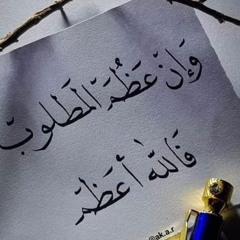 وَإِنْ عَظُمَ الْمَطلوبُ
فَاللّهُ أعْظَمُ
@ak.a.r